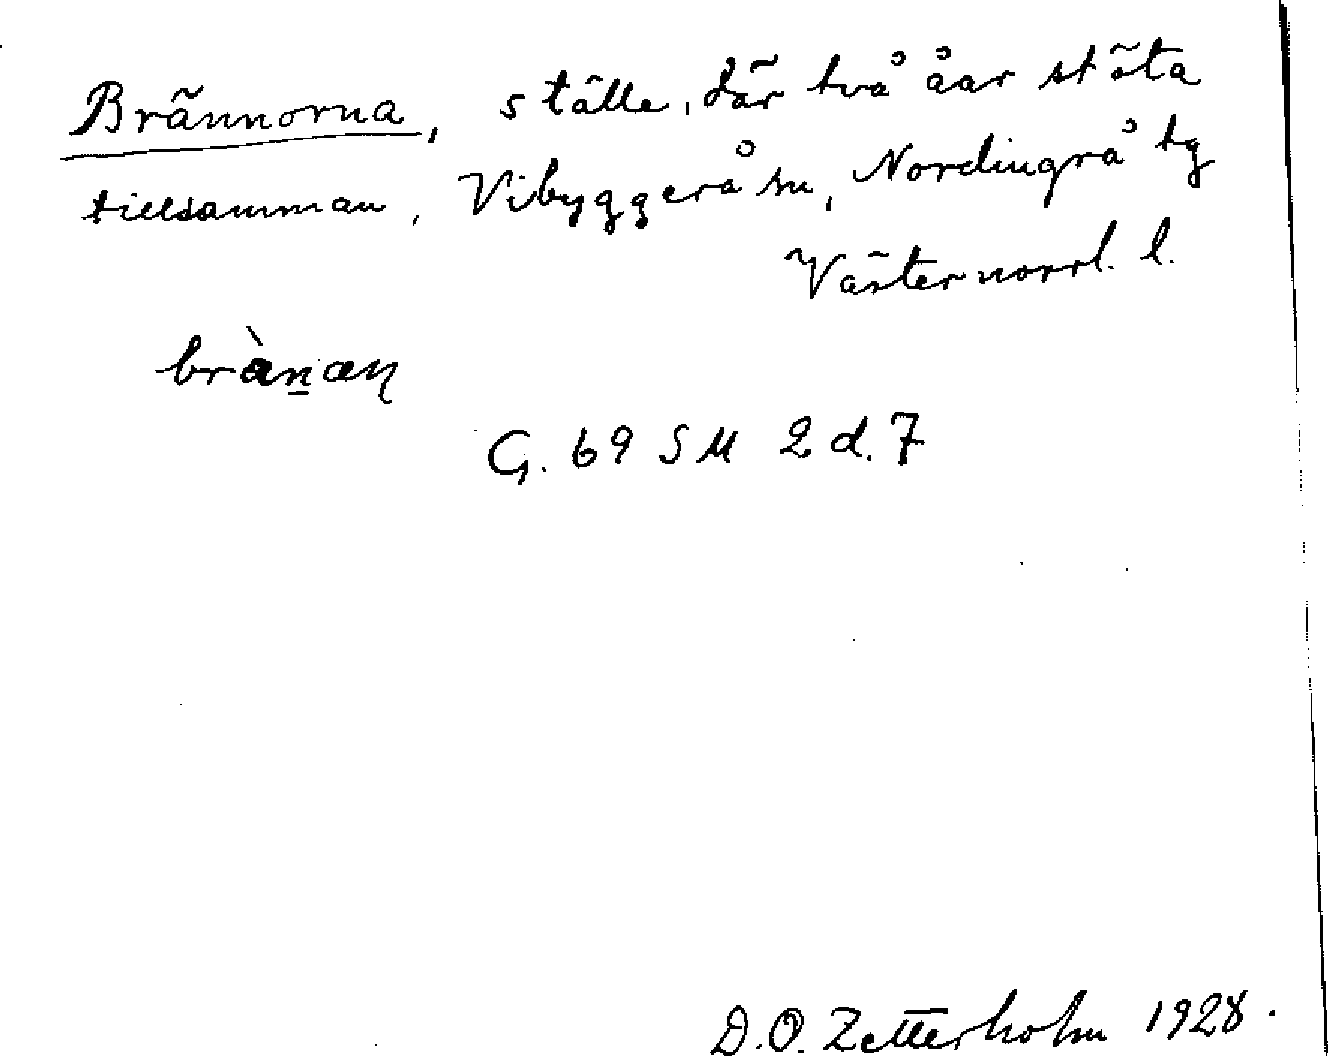 Brännorna, ställe, där två åar stöta
tillsamman, Vibyggerå sn, Nordingrå tg
Västernorrl. l.
brànæɳ
G. 69 SM 2 d. 7
D. O. Zetterholm 1928.